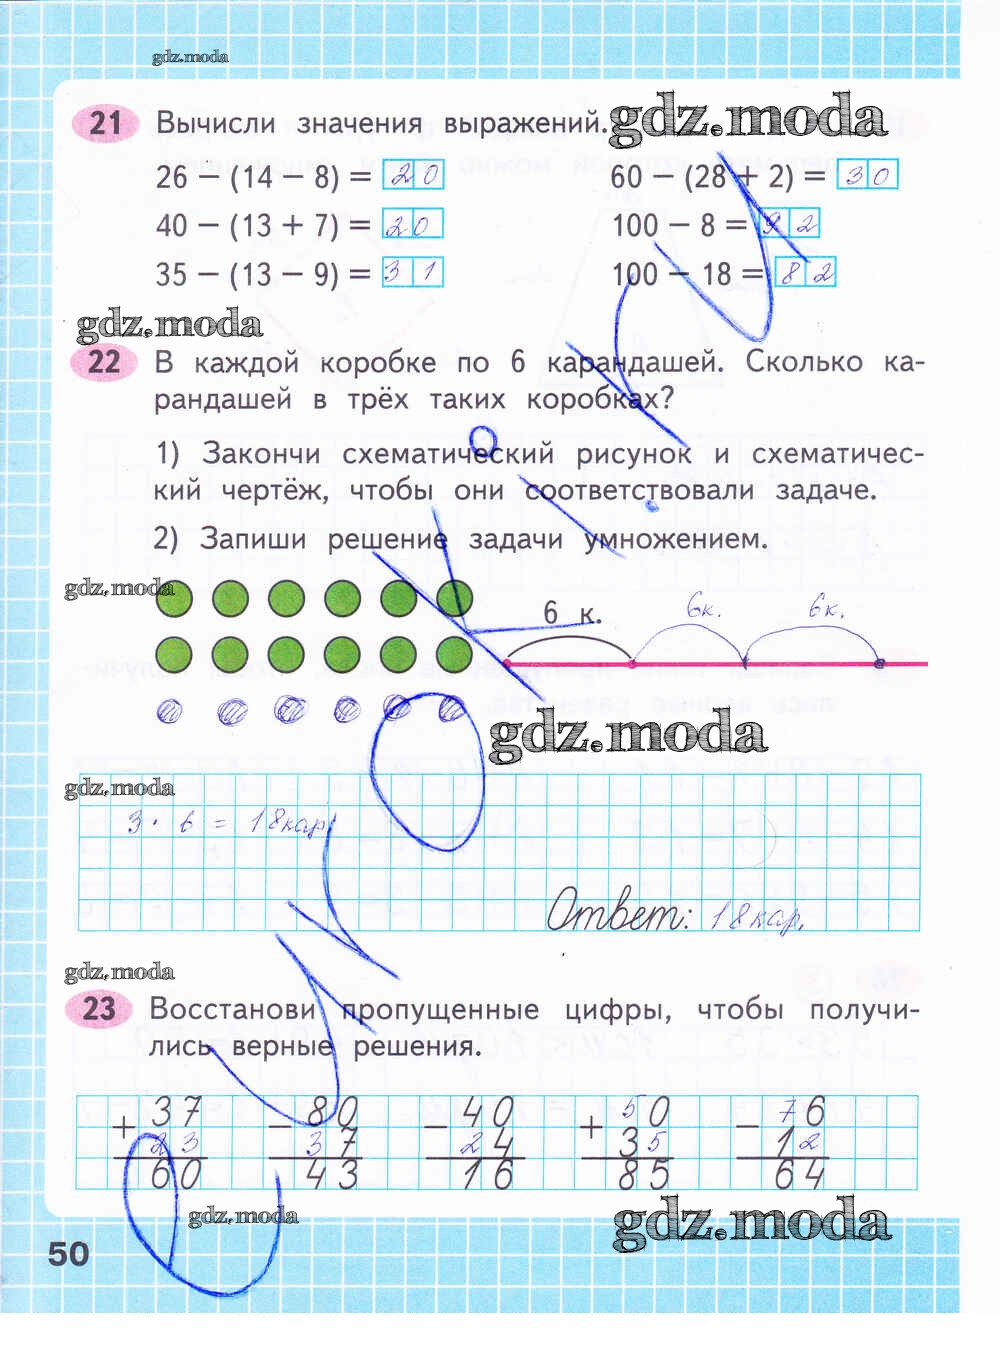 gdz.moda
21 Вычисли значения выражений. gdz.moda
26 − (14 − 8) = 20
60 − (28 + 2) = 30
40 − (13 + 7) = 20
100 − 8 = 92
35 − (13 − 9) = 31
100 − 18 = 82
gdz.moda
22 В каждой коробке по 6 карандашей. Сколько ка-
рандашей в трёх таких коробках?
1) Закончи схематический рисунок и схематичес-
кий чертёж, чтобы они соответствовали задаче.
2) Запиши решение задачи умножением.
gdz.moda
6 к. 6к. 6к.
gdz.moda
gdz.moda
3 · 6 = 18кар
Ответ: 18кар.
gdz.moda
23 Восстанови пропущенные цифры, чтобы получи-
лись верные решения.
+ 37 − 80 − 40 + 50 − 76
23 37 24 35 12
60 43 16 85 64
gdz.moda
gdz.moda
50